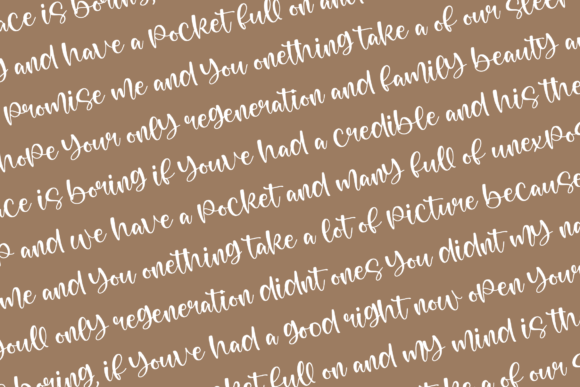 ace is boring,
and have a pocket full on and
promise me and you onething take a of our sleep
hope your only regeneration and family beauty a
ace is boring if youve had a credible and his the
and we have a pocket and many full of unexpo
me and you onething take a lot of picture because
youll only regeneration didnt ones you didnt my na
boring, if youve had a good right now open your
pocket full on and my mind is th
take a of our s